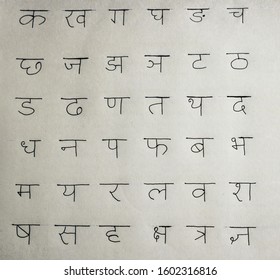 क ख ग घ ङ च
छ ज झ ञ ट ठ
ड ढ ण त थ द
ध न प फ ब भ
म य र ल व श
ष स ह क्ष त्र ज्ञ
shutterstock.com · 1602316816